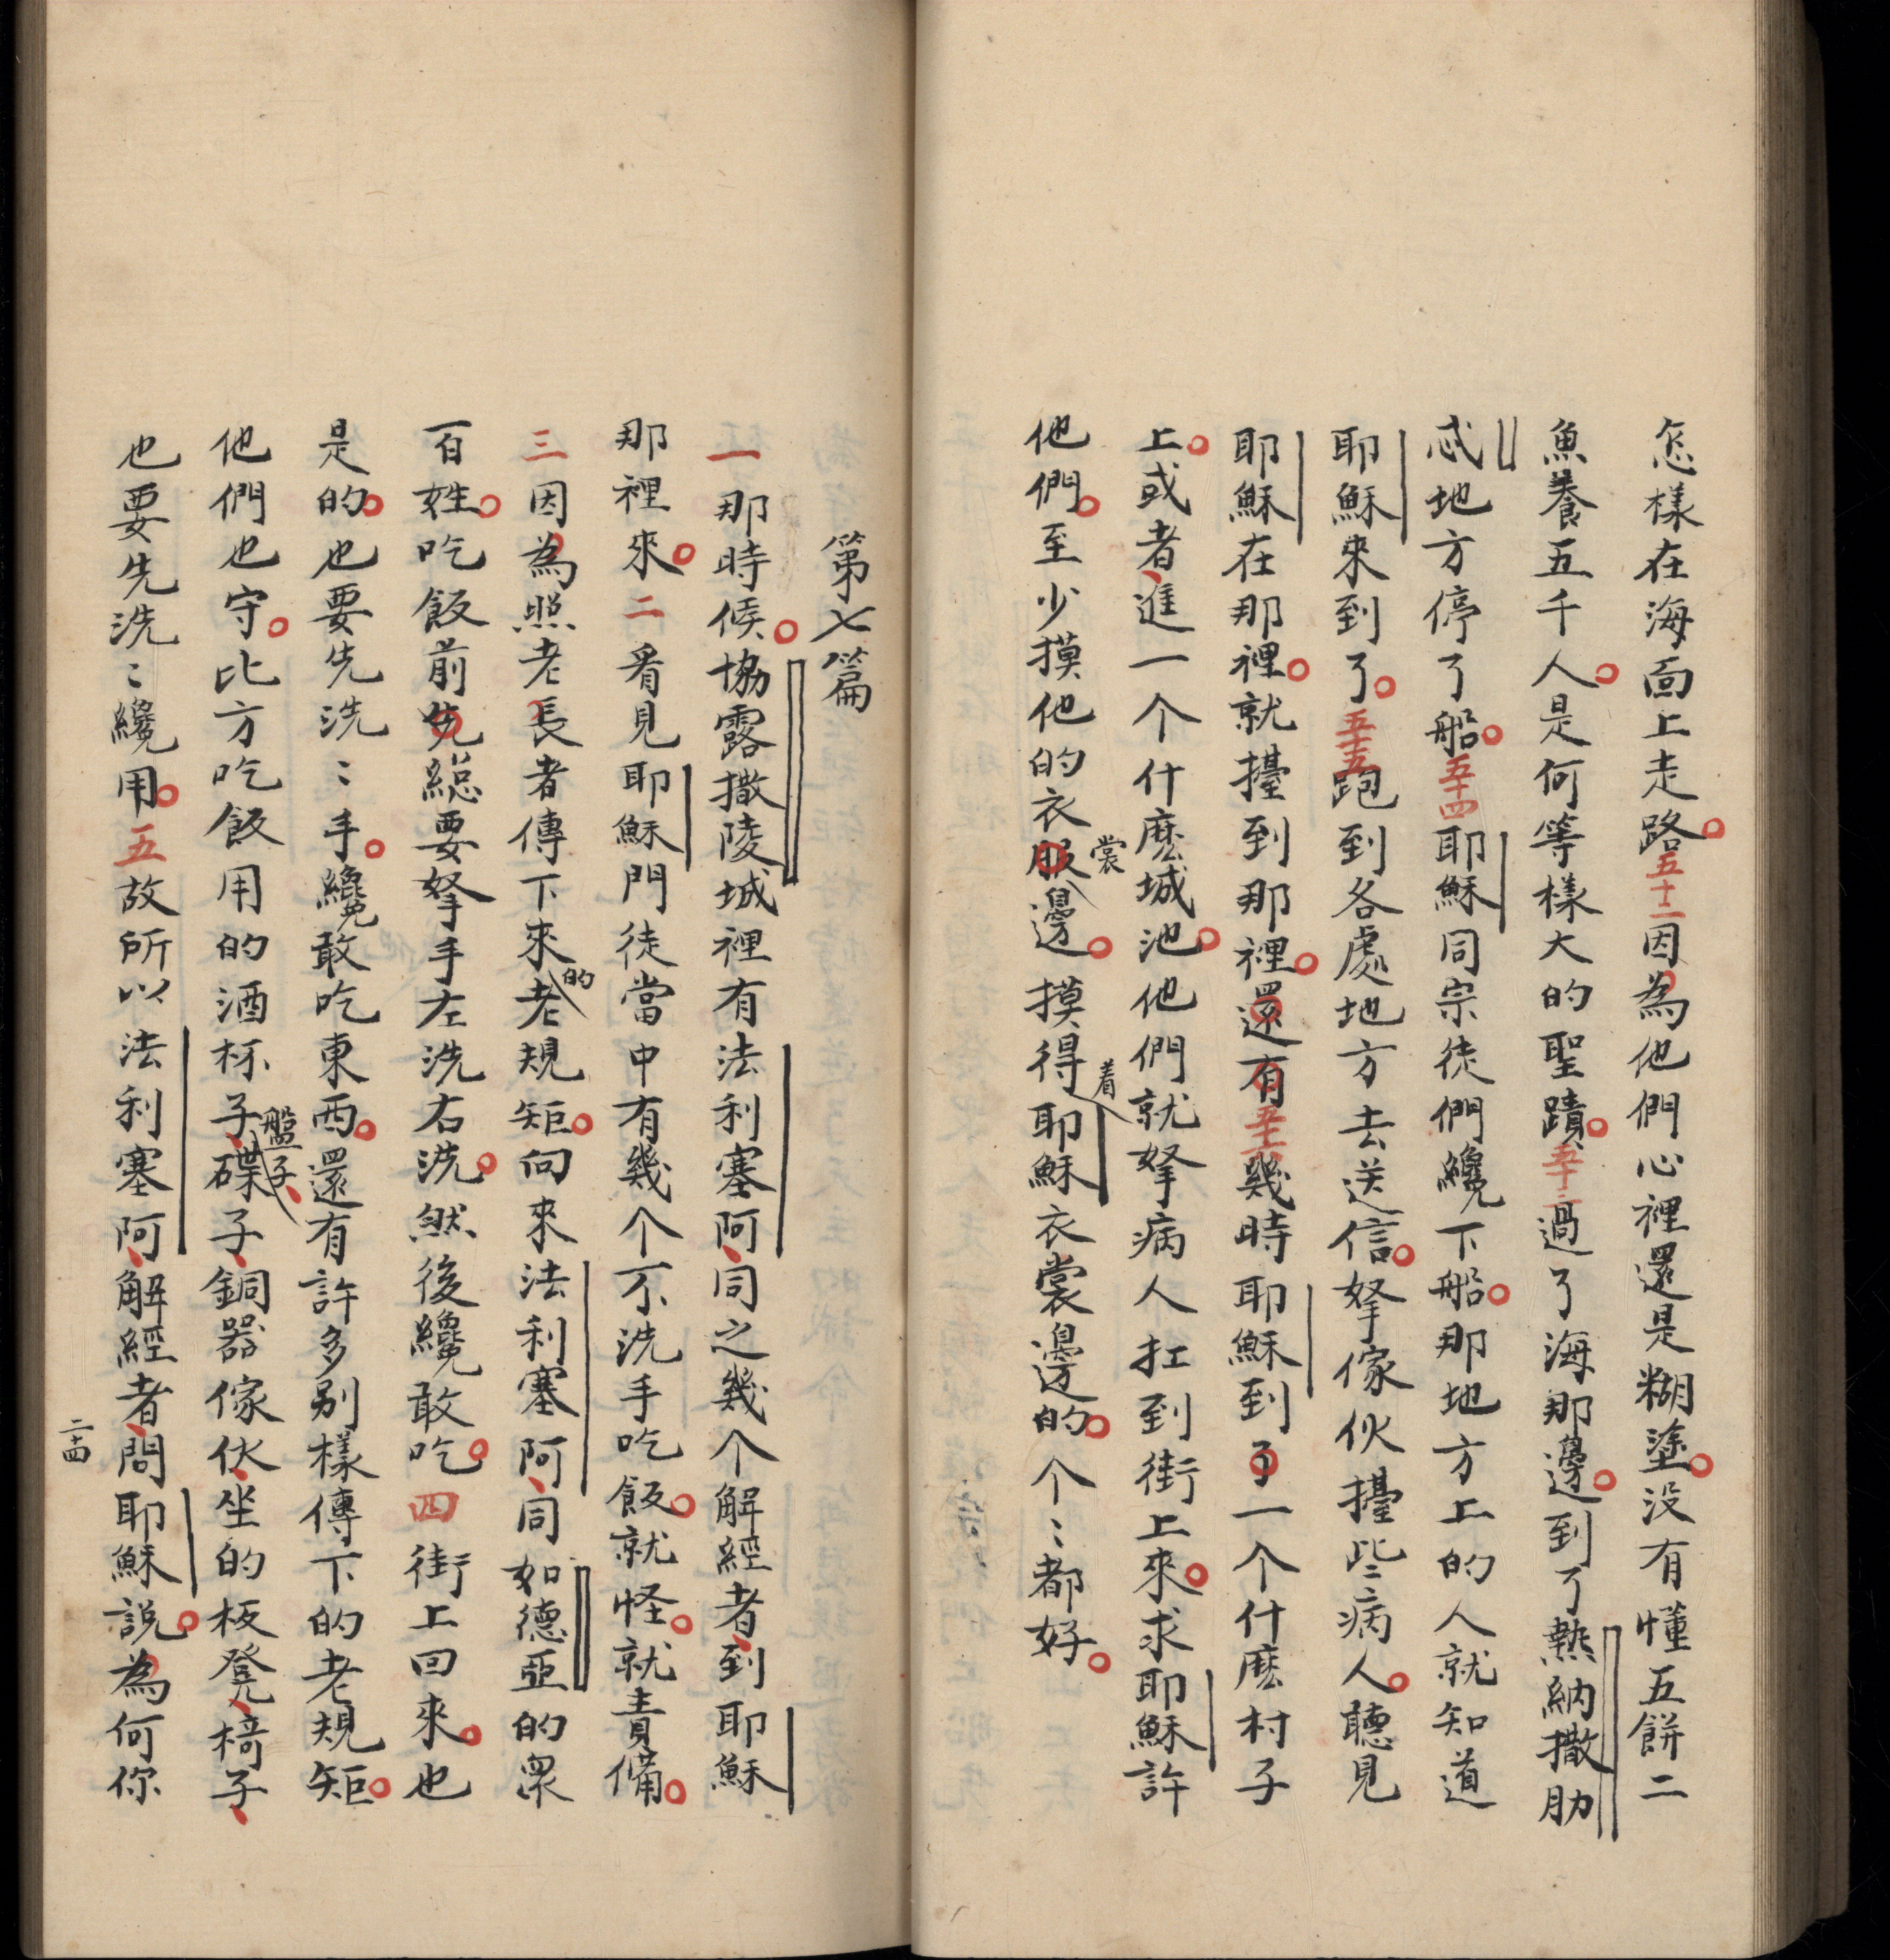 怎樣在海面上走路。五十二因為他們心裡還是糊塗。没有懂五餅二
魚養五千人。是何等樣大的聖蹟。五十三過了海那邊。到了熱納撒肋
忒地方停了船。五十四耶穌同宗徒們纔下船。那地方上的人就知道
耶穌來到了。五十五跑到各處地方去送信。拏傢伙擡些病人。聽見
耶穌在那裡。就擡到那裡。還有五十六幾時耶穌到了一个什麽村子
上。或者、進一个什麽城池。他們就拏病人扛到街上來。求耶穌許
他們。至少摸他的衣服裳邊。摸得着耶穌衣裳邊的。个〻都好。
第七篇
一那時候。協露撒陵城裡有法利塞阿、同之幾个解經者、到耶穌
那裡來。二看見耶穌門徒當中有幾个不洗手吃飯。就怪。就責備。
三因為照老長者傳下來的老規矩。向來法利塞阿、同如德亞的眾
百姓。吃飯前先總要拏手左洗右洗。然後纔敢吃。四街上回來。也
是的。也要先洗〻手。纔敢吃東西。還有許多别樣傳下的老規矩。
他們也守。比方吃飯用的酒杯子、盤子、碟子、銅器傢伙、坐的板凳、椅子、
也要先洗〻纔用。五故所以法利塞阿、解經者、問耶穌説。為何你
二十四